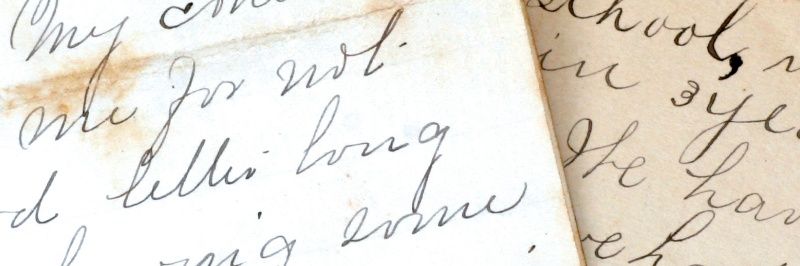 My
me for not
d letter long
some
school,
in 3 ye
The hav